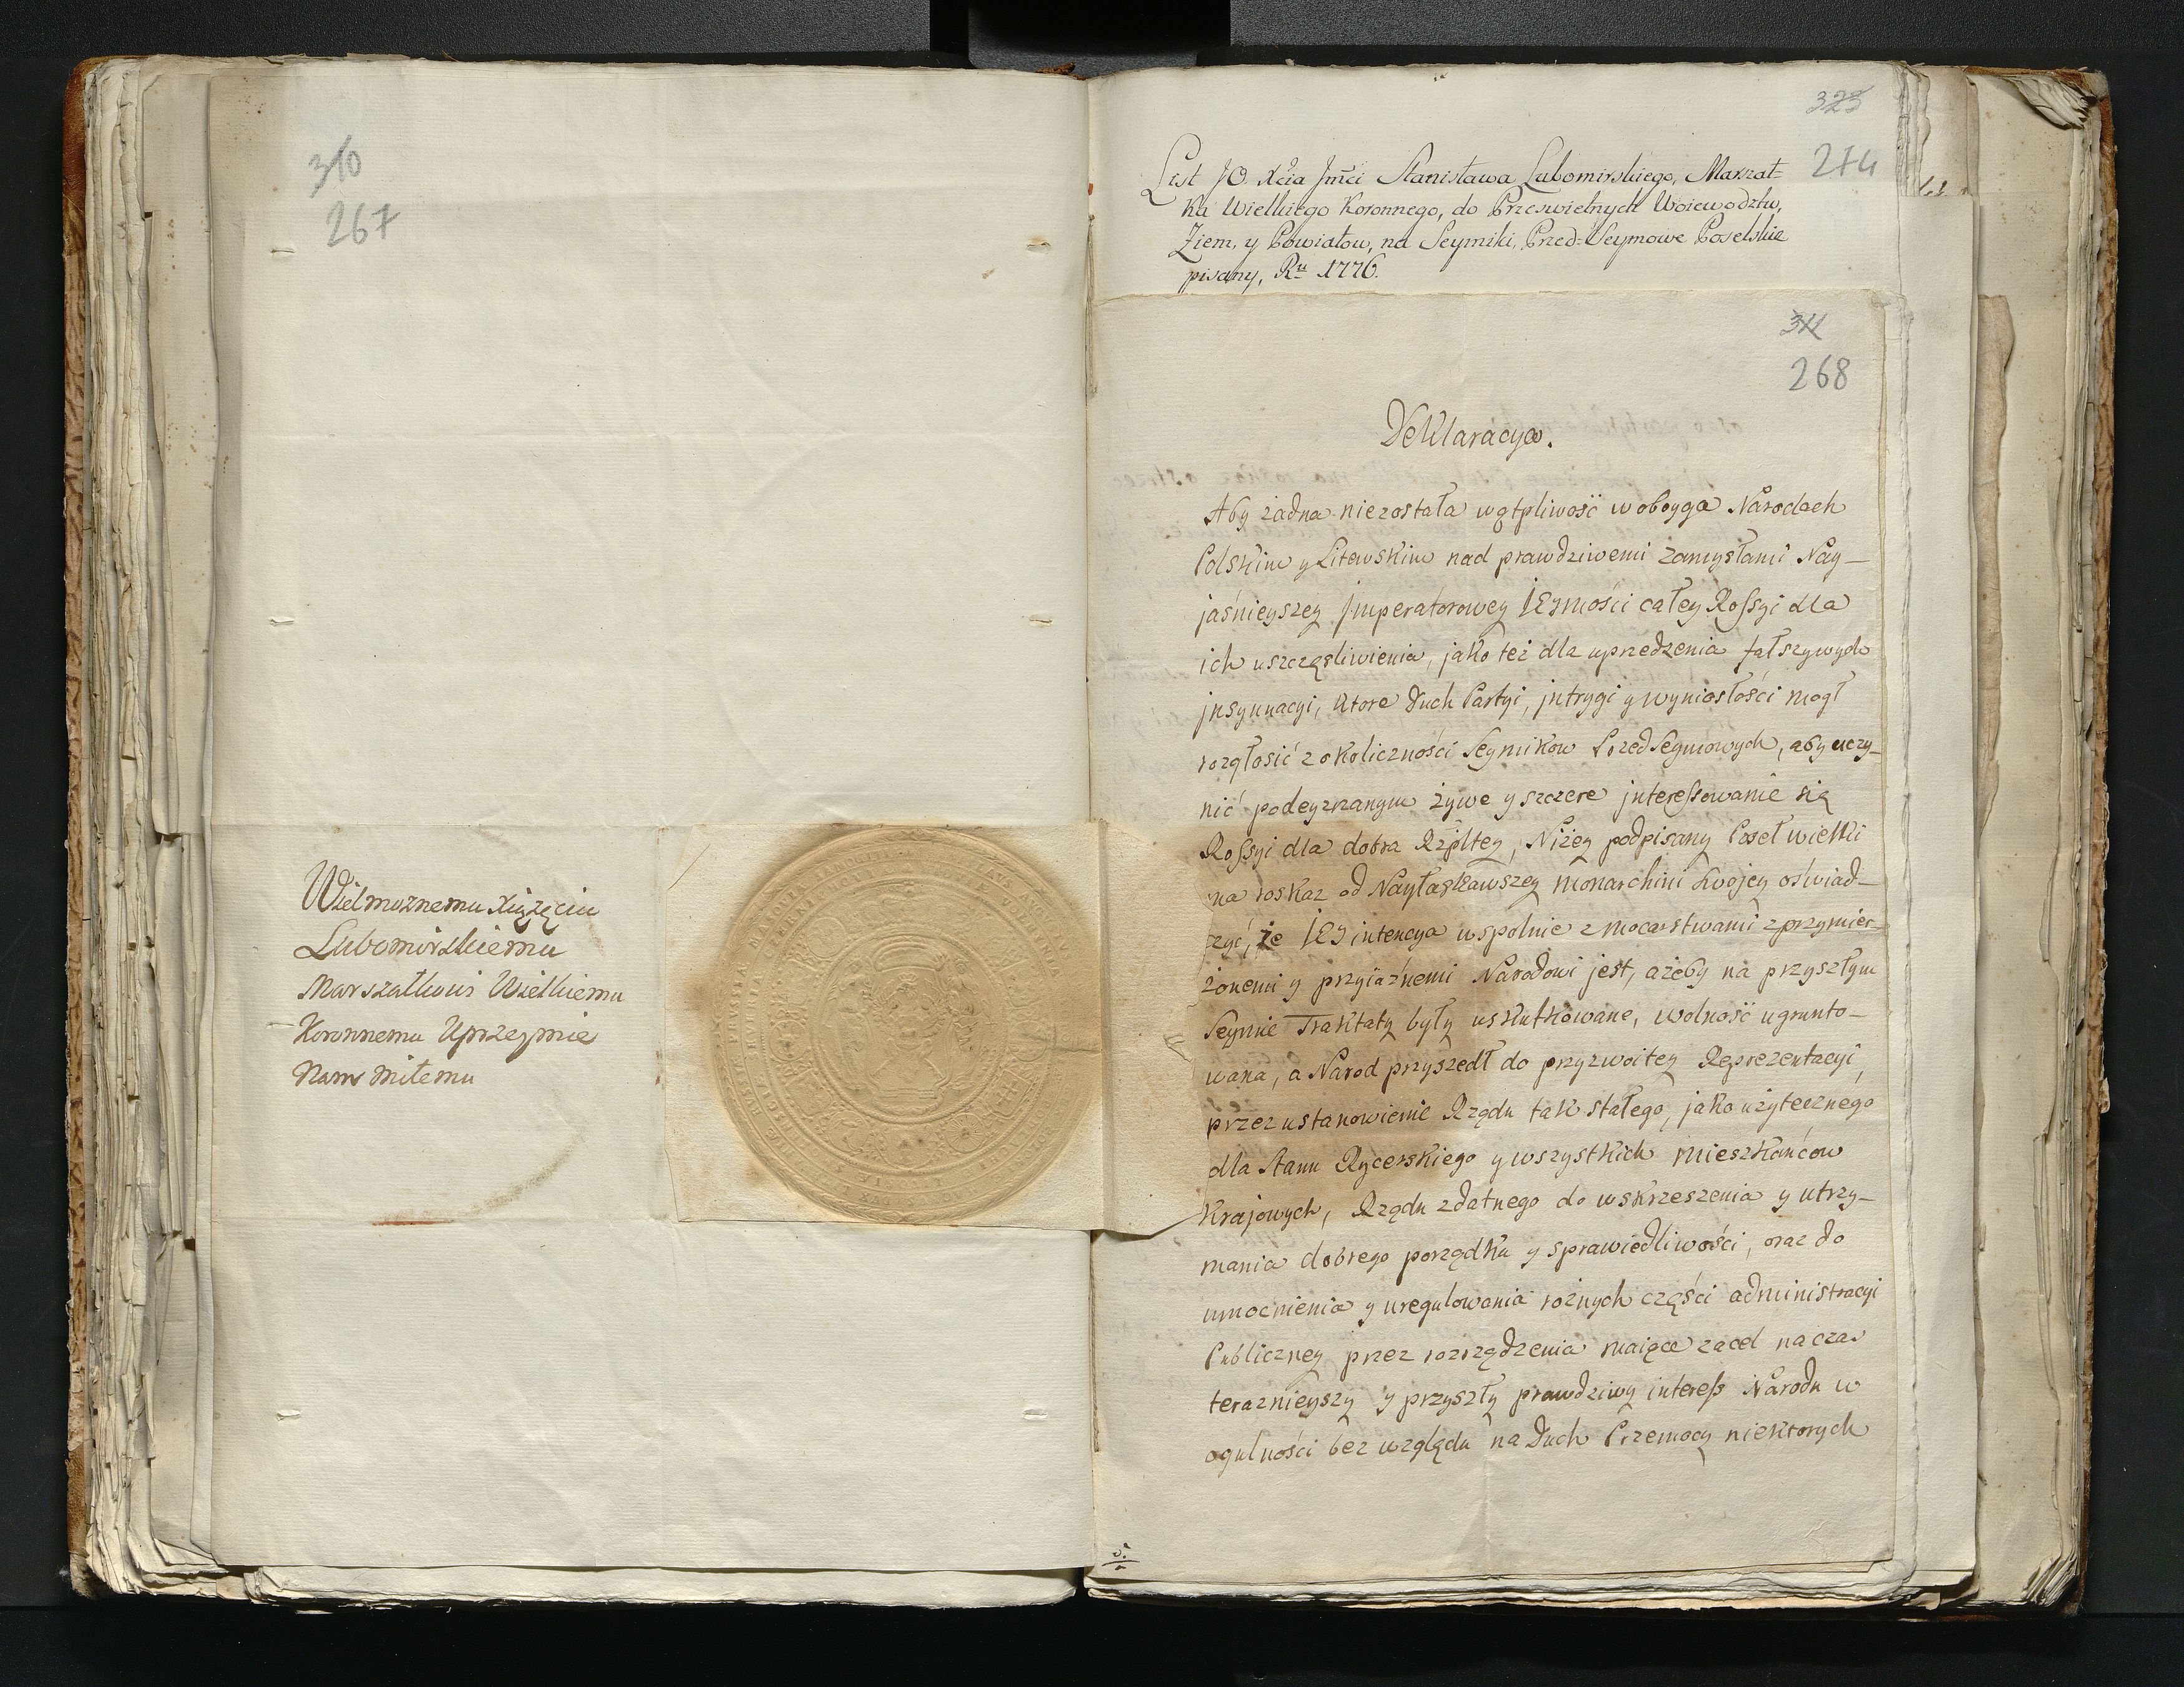 310
267
Wielmoznemu Xiążęciu
Lubomirskiemu
Marszałkowi Wielkiemu
Koronnemu Uprzeymie
Nam miłemu
323
274
List JO. Xcia Jmci Stanisława Lubomirskiego, Marszał=
ka Wielkiego Koronnego, do Prześwietnych Woiewodztw,
Ziem, y Powiatow, na Seymiki, Przed=Seymowe Poselskie
pisany, Ru 1776.
311
268
Deklaracya.
Aby żadna niezostała wątpliwość w oboyga Narodach
Polskim y Litewskim nad prawdziwemi zamysłami Nay-
jaśnieyszey Jmperatorowey JEYmości całey Rossyi dla
ich uszczęsliwienia, jako też dla uprzedzenia fałszywych
jnsynuacyi, ktore Duch Partyi, jntrygi y wyniosłości mogł
rozgłosić z okoliczności Seymikow PrzedSeymowych, aby uczy-
nić podeyrzanym żywe y szczere jnteressowanie się
Rossyi dla dobra Rzpltey, Niżey podpisany Poseł wielki
ma roskaz od Nayłaskawszey Monarchini Swojey oświad-
czyć, że JEY intencya wspolnie z mocarstwami zprzymier-
żonemi y przyiaźnemi Narodowi jest, ażeby na przyszłym
Seymie Traktaty były uskutkowane, wolność ugrunto-
wana, a Narod przyszedł do przyzwoitey Reprezentacyi,
przez ustanowienie Rządu tak stałego, jako użytecznego
dla Stanu Rycerskiego y wszystkich Mieszkańcow
Krajowych, Rządu zdatnego do wskrzeszenia y utrzy-
mania dobrego porządku y sprawiedliwości, oraz do
umocnienia y uregulowania rożnych części administracyi
Publiczney przez rozrządzenia maiące za cel na czas
teraznieyszy y przyszły prawdziwy interess Narodu w
ogulności bez względu na Duch Przemocy niektorych